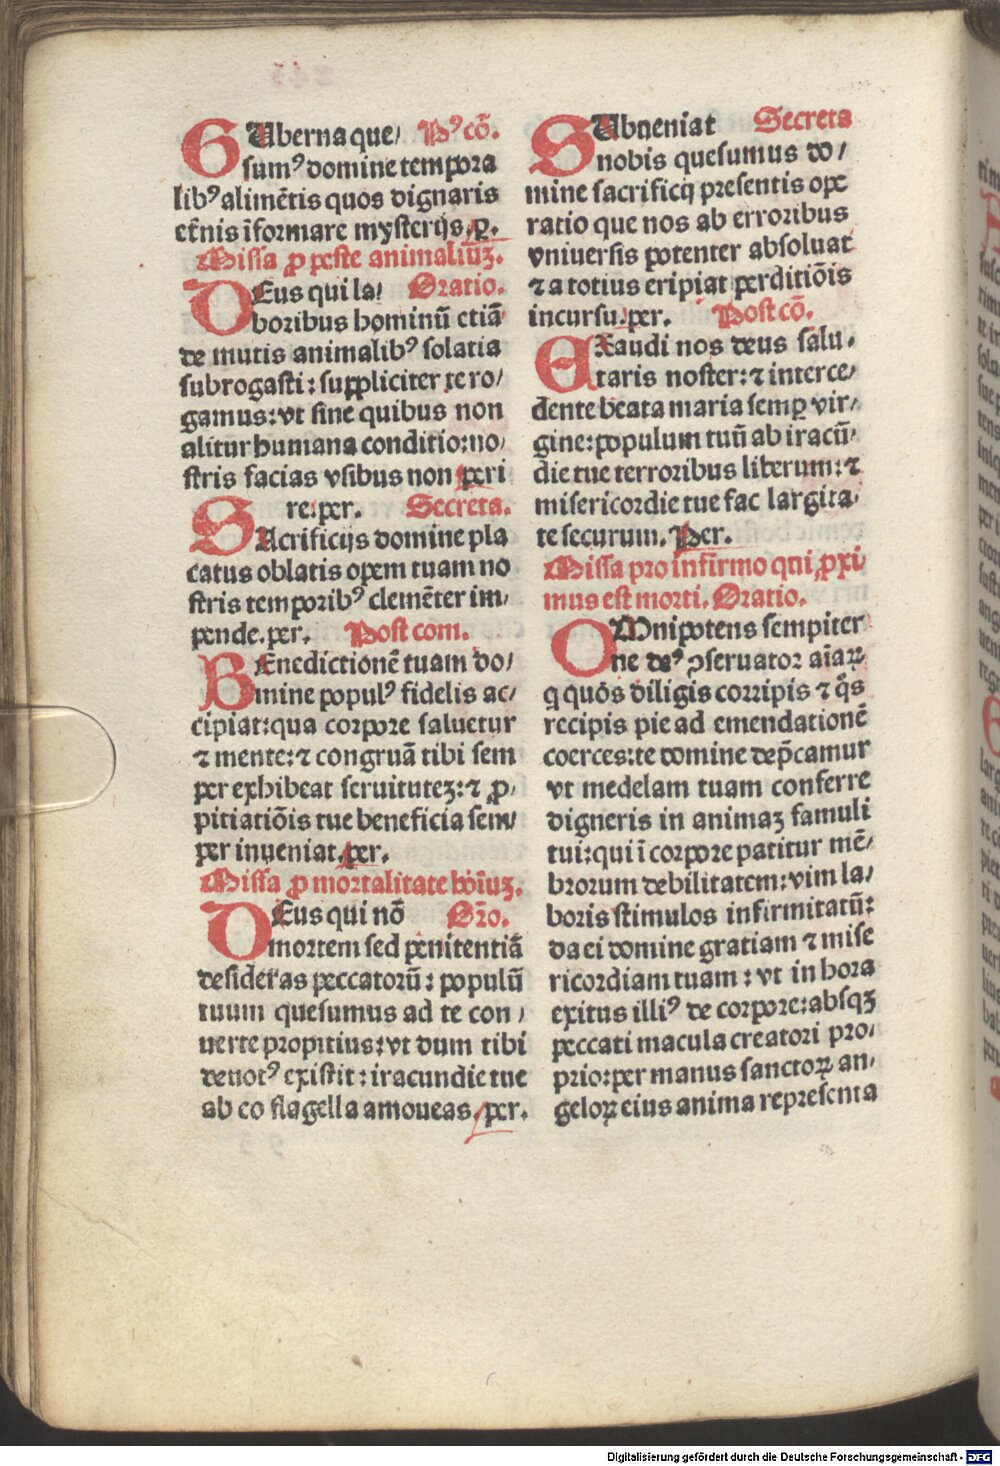 GUberna que/ Pꝰ cō.
sumꝰ domine tempora
libꝰ alimētis quos dignaris
et̄nis īformare mysterijs. p.
Missa ꝓ peste animaliūꝫ.
DEus qui la/ Oratio.
boribus hominū etiā
de mutis animalibꝰ solatia
subrogasti: suppliciter te ro/
gamus: vt sine quibus non
alitur humana conditio: no/
stris facias vsibus non peri
re: per. Secreta.
SAcrificijs domine pla
catus oblatis opem tuam no
stris temporibꝰ clemēter im/
pende. per. Post com.
BEnedictionē tuam do/
mine populꝰ fidelis ac/
cipiat: qua corpore saluetur
⁊ mente: ⁊ congruā tibi sem
per exhibeat seruituteꝫ: ⁊ ꝓ/
pitiatiōis tue beneficia sem/
per inueniat. per.
Missa ꝓ mortalitate hoīuꝫ.
DEus qui nō Orō.
mortem sed penitentiā
desideras peccatorū: populū
tuum quesumus ad te con/
uerte propitius: vt dum tibi
deuotꝰ existit: iracundie tue
ab eo flagella amoueas. per.
SUbueniat Secreta
nobis quesumus do/
mine sacrificij presentis ope
ratio que nos ab erroribus
vniuersis potenter absoluat
⁊ a totius eripiat perditiōis
incursu. per. Post cō.
EXaudi nos deus salu/
taris noster: ⁊ interce/
dente beata maria semꝑ vir/
gine: populum tuū ab iracū/
die tue terroribus liberum: ⁊
misericordie tue fac largita/
te securum. Per.
Missa pro infirmo qui ꝓxi/
mus est morti. Oratio.
OMnipotens sempiter
ne deꝰ ꝯseruator aīaꝝ
q quōs diligis corripis ⁊ q̄s
recipis pie ad emendationē
coerces: te domine dep̄camur
vt medelam tuam conferre
digneris in animaꝫ famuli
tui: qui ī corpore patitur mē/
brorum debilitatem: vim la/
boris stimulos infirmitatū:
da ei domine gratiam ⁊ mise
ricordiam tuam: vt in hora
exitus illiꝰ de corpore: absqꝫ
peccati macula creatori pro/
prio: per manus sanctoꝝ an/
geloꝝ eius anima representa
Digitalisierung gefördert durch die Deutsche Forschungsgemeinschaft - DFG